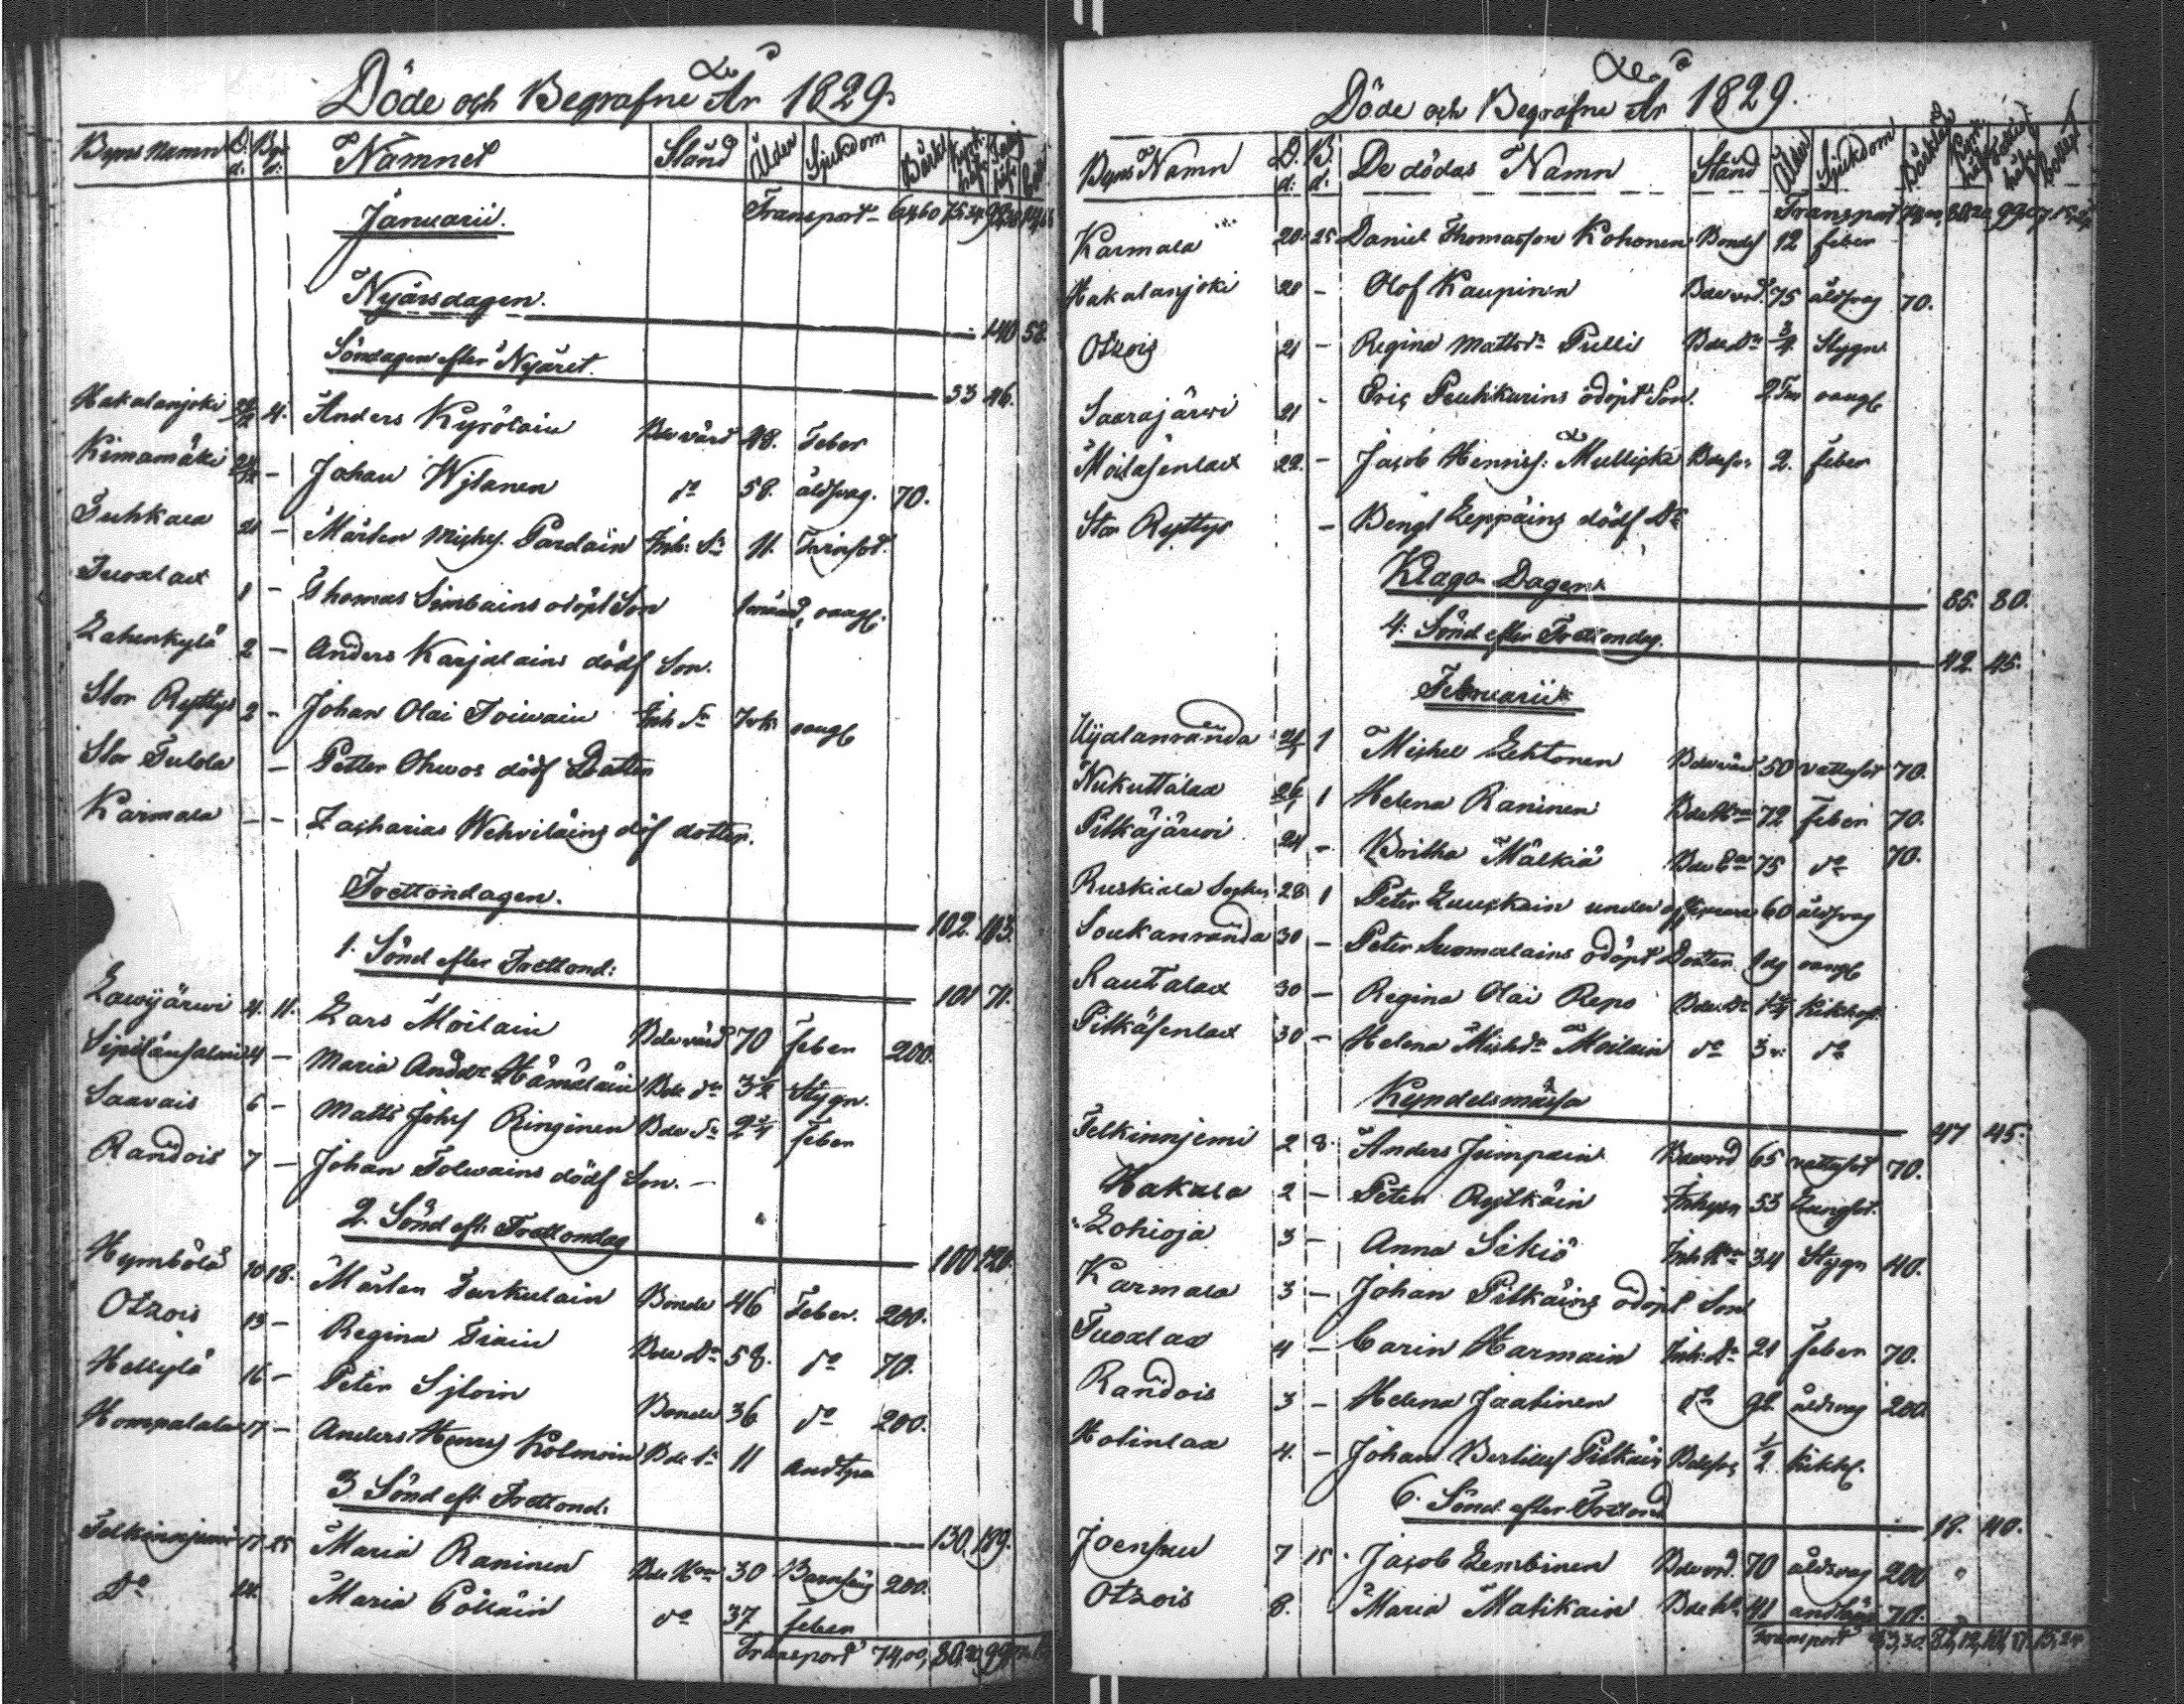 Döde och Begrafne År 1829.
Byns Namn D. d. Beg. d. Namnet Stånd Ålder Sjukdom
Januarii. Transport 64,60
Nyårsdagen. 140 58
Söndagen efter Nyåret. 33 46.
Hakalanjoki 4. Anders Kyröläin Bde värd 48. Feber
Kimamäki 24/12 – Johan Wjlanen do 58. åldsvag. 70.
Puhkala 21 – Mårten Michs. Pardain Inh: Sn 11.
Tuoxlax 1 – Thomas Simbains odöpt Son 1 månad, oangf.
Lahenkylä 2 – Anders Karjalains dödf Son.
Stor Ryttys 2 – Johan Olai Toiwain Inh Sn 7 vk: oangf
Stor Tulola – Petter Ohwos dödf Dotter
Karmala – – Zacharias Wehviläins döf dotter.
Trettondagen. 102. 103.
1. Sönd efter Trettond: 101 71.
Lawijärwi 4. 11. Lars Moilain Bde värd 70 feber 200.
4 – Maria Andrs Hämäläin Bde dr 3 1/2 Stygn.
Saavais 6 – Matts Johs Ringinen Bde Sn 2 1/4 Feber
Randois 7 – Johan Tolwains dödf Son. –
2. Sönd eft. Trettondag 100 120.
Hymbölä 10 18. Mårten Turkulain Bonde 46 Feber. 200.
Otzois 13 – Regina Tiain Bde Dr 58. do 70.
Hellylä 16 – Peter Sjloin Bonde 36 do 200.
Hompalala 17 – Anders Henrs Kolmoin Bde Sn 11 Andtpa
3 Sönd eft. Trettond: 130. 189.
Tolkinnjemi 17 25 Maria Raninen Bde Hru 30 Barnsäng 200.
Do Maria Cölläin do 37 feber
Transport 74,00,
Döde och Begrafne År 1829.
Byns Namn D. d: B. d: De dödas Namn Stånd Ålder Sjukdom
Transport
Karmala 20 25 Daniel Thomasson Kohonen Bondes 12 feber
Hakalanjoki 20 – Olof Kaupinen Bde vrd. 75 åldsvag 70.
Otzois 21 – Regina Mattsdr Pulli Bde Dr 3/4 Stygn.
Saarajärwi 21 – Eric Peuhkurins odöpt Son. oangf
Moilasenlax 22. – Jacob Henrics: Mullicka Bdeson 2. feber
Stor Ryttys – Bengt Leppäins dödf Dr
Klago Dagen 85. 80.
4: Sönd. efter Trettondag. 42. 45.
Februarii
Uijalanranda 1 Michel Lehtonen Bde värd 50 vattusot 70.
Nukuttalax 26/1 1 Helena Raninen Bde Hru 72 feber 70.
Pitkäjärwi 24 – Britha Mälkiä Bde 75 do 70.
Ruskiala Sochn 28 1 Peter Luuckain underofficerare 60 åldsvag
Soukanranda 30 – Peter Suomalains odöpt Dotter 1 dg oangf
Rautalax 30 – Regina Olai Repo Bde Dr Kikhost.
Pitkäsenlax 30 – Helena Michdr Moilain do 3 do
Kyndelsmässa 47 45.
Tolkinnjemi 2 8. Anders Jumpain Bde vrd 65 vattusot 70.
Hakala 2 – Peter Rytkäin Inhysn 53 Lungsot.
Lohioja 3 – Anna Sikiö Inh Hru 34 Stygn 40.
Karmala 3 – Johan Pitkäins odöpt Son
Tuoxlax 4 – Carin Harmain Inh: Dr 21 feber 70.
Randois 3 – Helena Jaatinen do åldsvag 200
Hotinlax 4. – Johan Bertilss Pitkäin Bdeson 1/2 kikhs.
6. Sönd. efter Trettond 18. 40.
Joensuu 7 15. Jacob Lembinen Bde vrd. 70 åldsvag 200
Otzois 8. Maria Matikain 41 70.
Transport